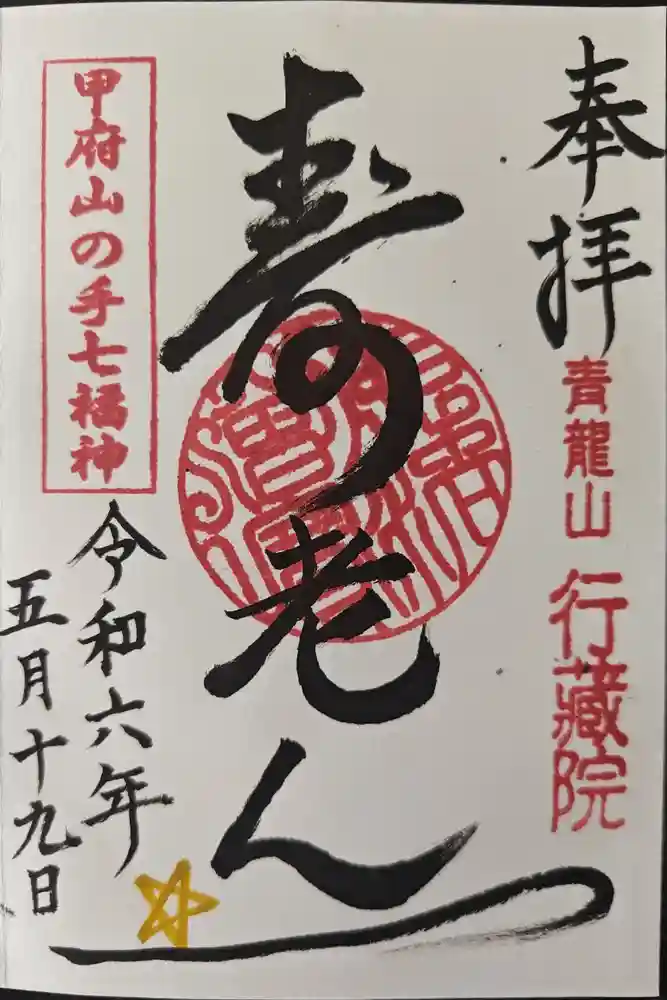 奉拝
青龍山
行藏院
寿老人
甲府山の手七福神
令和六年
五月十九日